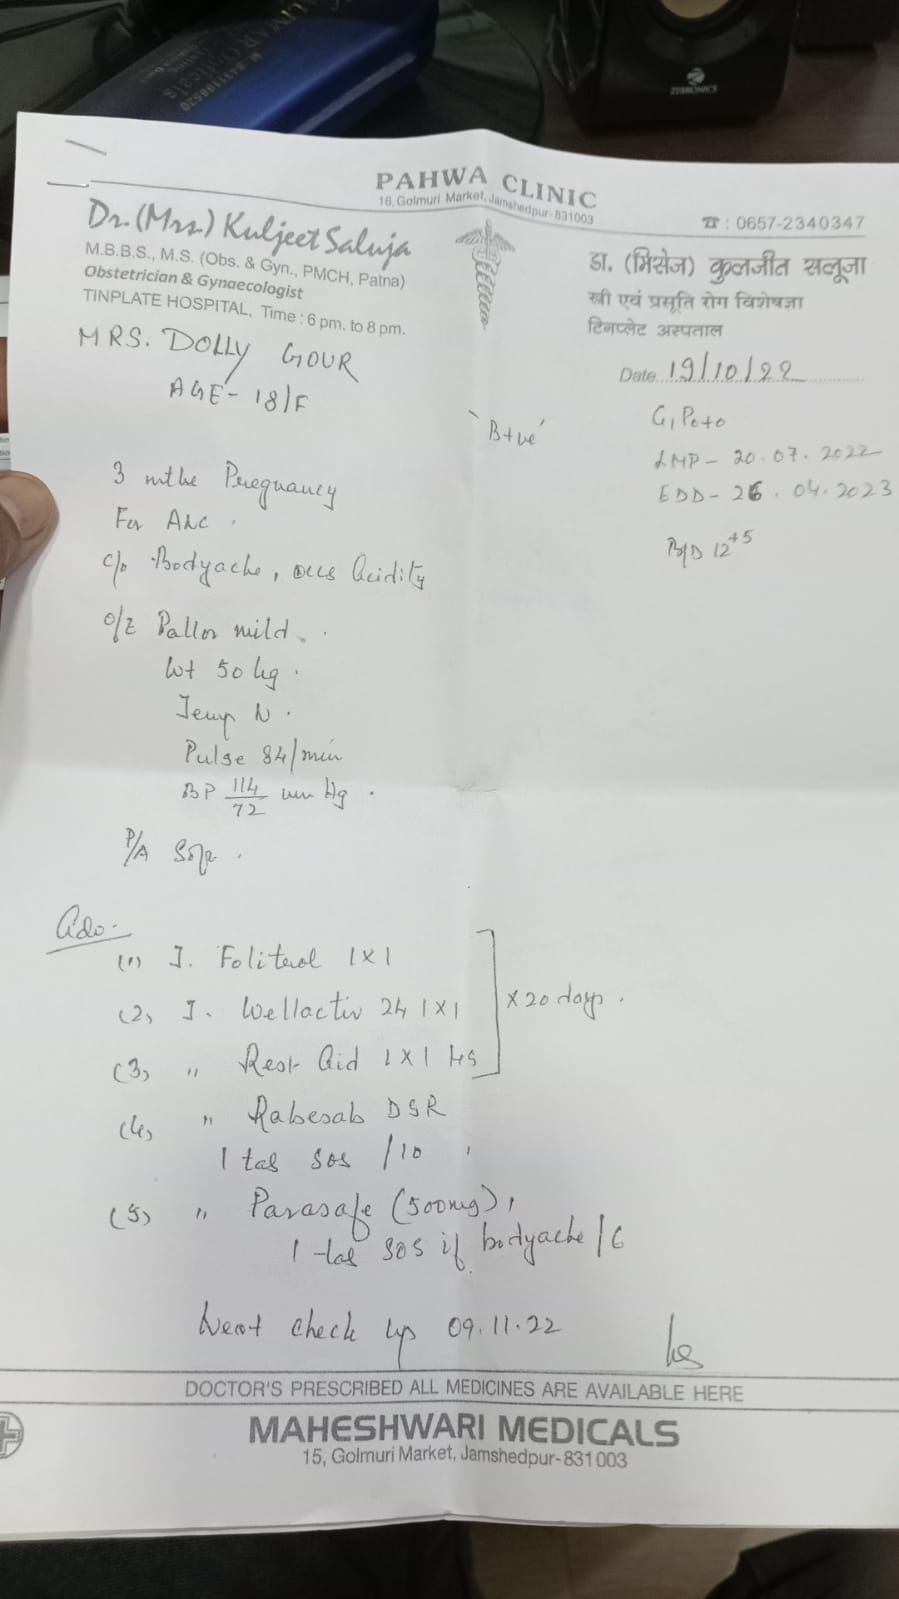 ZEBRONICS
PAHWA CLINIC
16, Golmuri Market, Jamshedpur-831003
☎ : 0657-2340347
Dr. (Mrs.) Kuljeet Saluja
M.B.B.S., M.S. (Obs. & Gyn., PMCH, Patna)
Obstetrician & Gynaecologist
TINPLATE HOSPITAL, Time : 6 pm. to 8 pm.
डा. (मिसेज) कुलजीत सलूजा
स्त्री एवं प्रसूति रोग विशेषज्ञा
टिनप्लेट अस्पताल
Date 19/10/22
MRS. DOLLY GOUR
AGE - 18/F
'B+ve'
G1P0+0
LMP - 20.07.2022
EDD - 26.04.2023
12+5
3 mths Pregnancy
For ANC.
c/o Bodyache, Acidity
o/E Pallor mild.
Wt 50 kg.
Temp N.
Pulse 84/min
BP 114/72 mm Hg.
P/A Soft.
Adv.-
(1) T. Foliterol 1x1
(2) T. Wellactiv 24 1x1
(3) " Rest Aid 1x1 HS
x 20 days.
(4) " Rabesab DSR
1 tab SOS /10
(5) " Parasafe (500mg),
1 tab SOS if bodyache /6
Next check up 09.11.22
DOCTOR'S PRESCRIBED ALL MEDICINES ARE AVAILABLE HERE
MAHESHWARI MEDICALS
15, Golmuri Market, Jamshedpur-831003